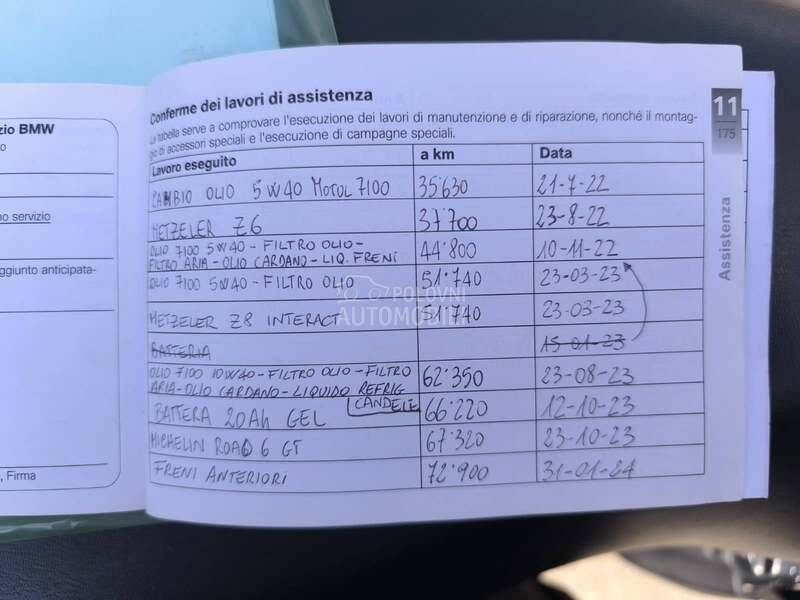 zio BMW
o
no servizio
aggiunto anticipata-
, Firma
Conferme dei lavori di assistenza
La tabella serve a comprovare l'esecuzione dei lavori di manutenzione e di riparazione, nonché il montag-
gio di accessori speciali e l'esecuzione di campagne speciali.
11
175
Assistenza
Lavoro eseguito a km Data
CAMBIO OLIO 5W40 MOTUL 7100 35'630 21-7-22
METZELER Z6 37'700 23-8-22
OLIO 7100 5W40 - FILTRO OLIO-
FILTRO ARIA - OLIO CARDANO - LIQ. FRENI 44'800 10-11-22
OLIO 7100 5W40 - FILTRO OLIO 51'740 23-03-23
METZELER Z8 INTERACT 51'740 23-03-23
BATTERIA 15-01-23
OLIO 7100 10W40 - FILTRO OLIO - FILTRO
ARIA - OLIO CARDANO - LIQUIDO REFRIG 62'350 23-08-23
CANDELE
BATTERA 20Ah GEL 66'220 12-10-23
MICHELIN ROAD 6 GT 67'320 23-10-23
FRENI ANTERIORI 72'900 31-01-24
POLOVNI
AUTOMOBILI